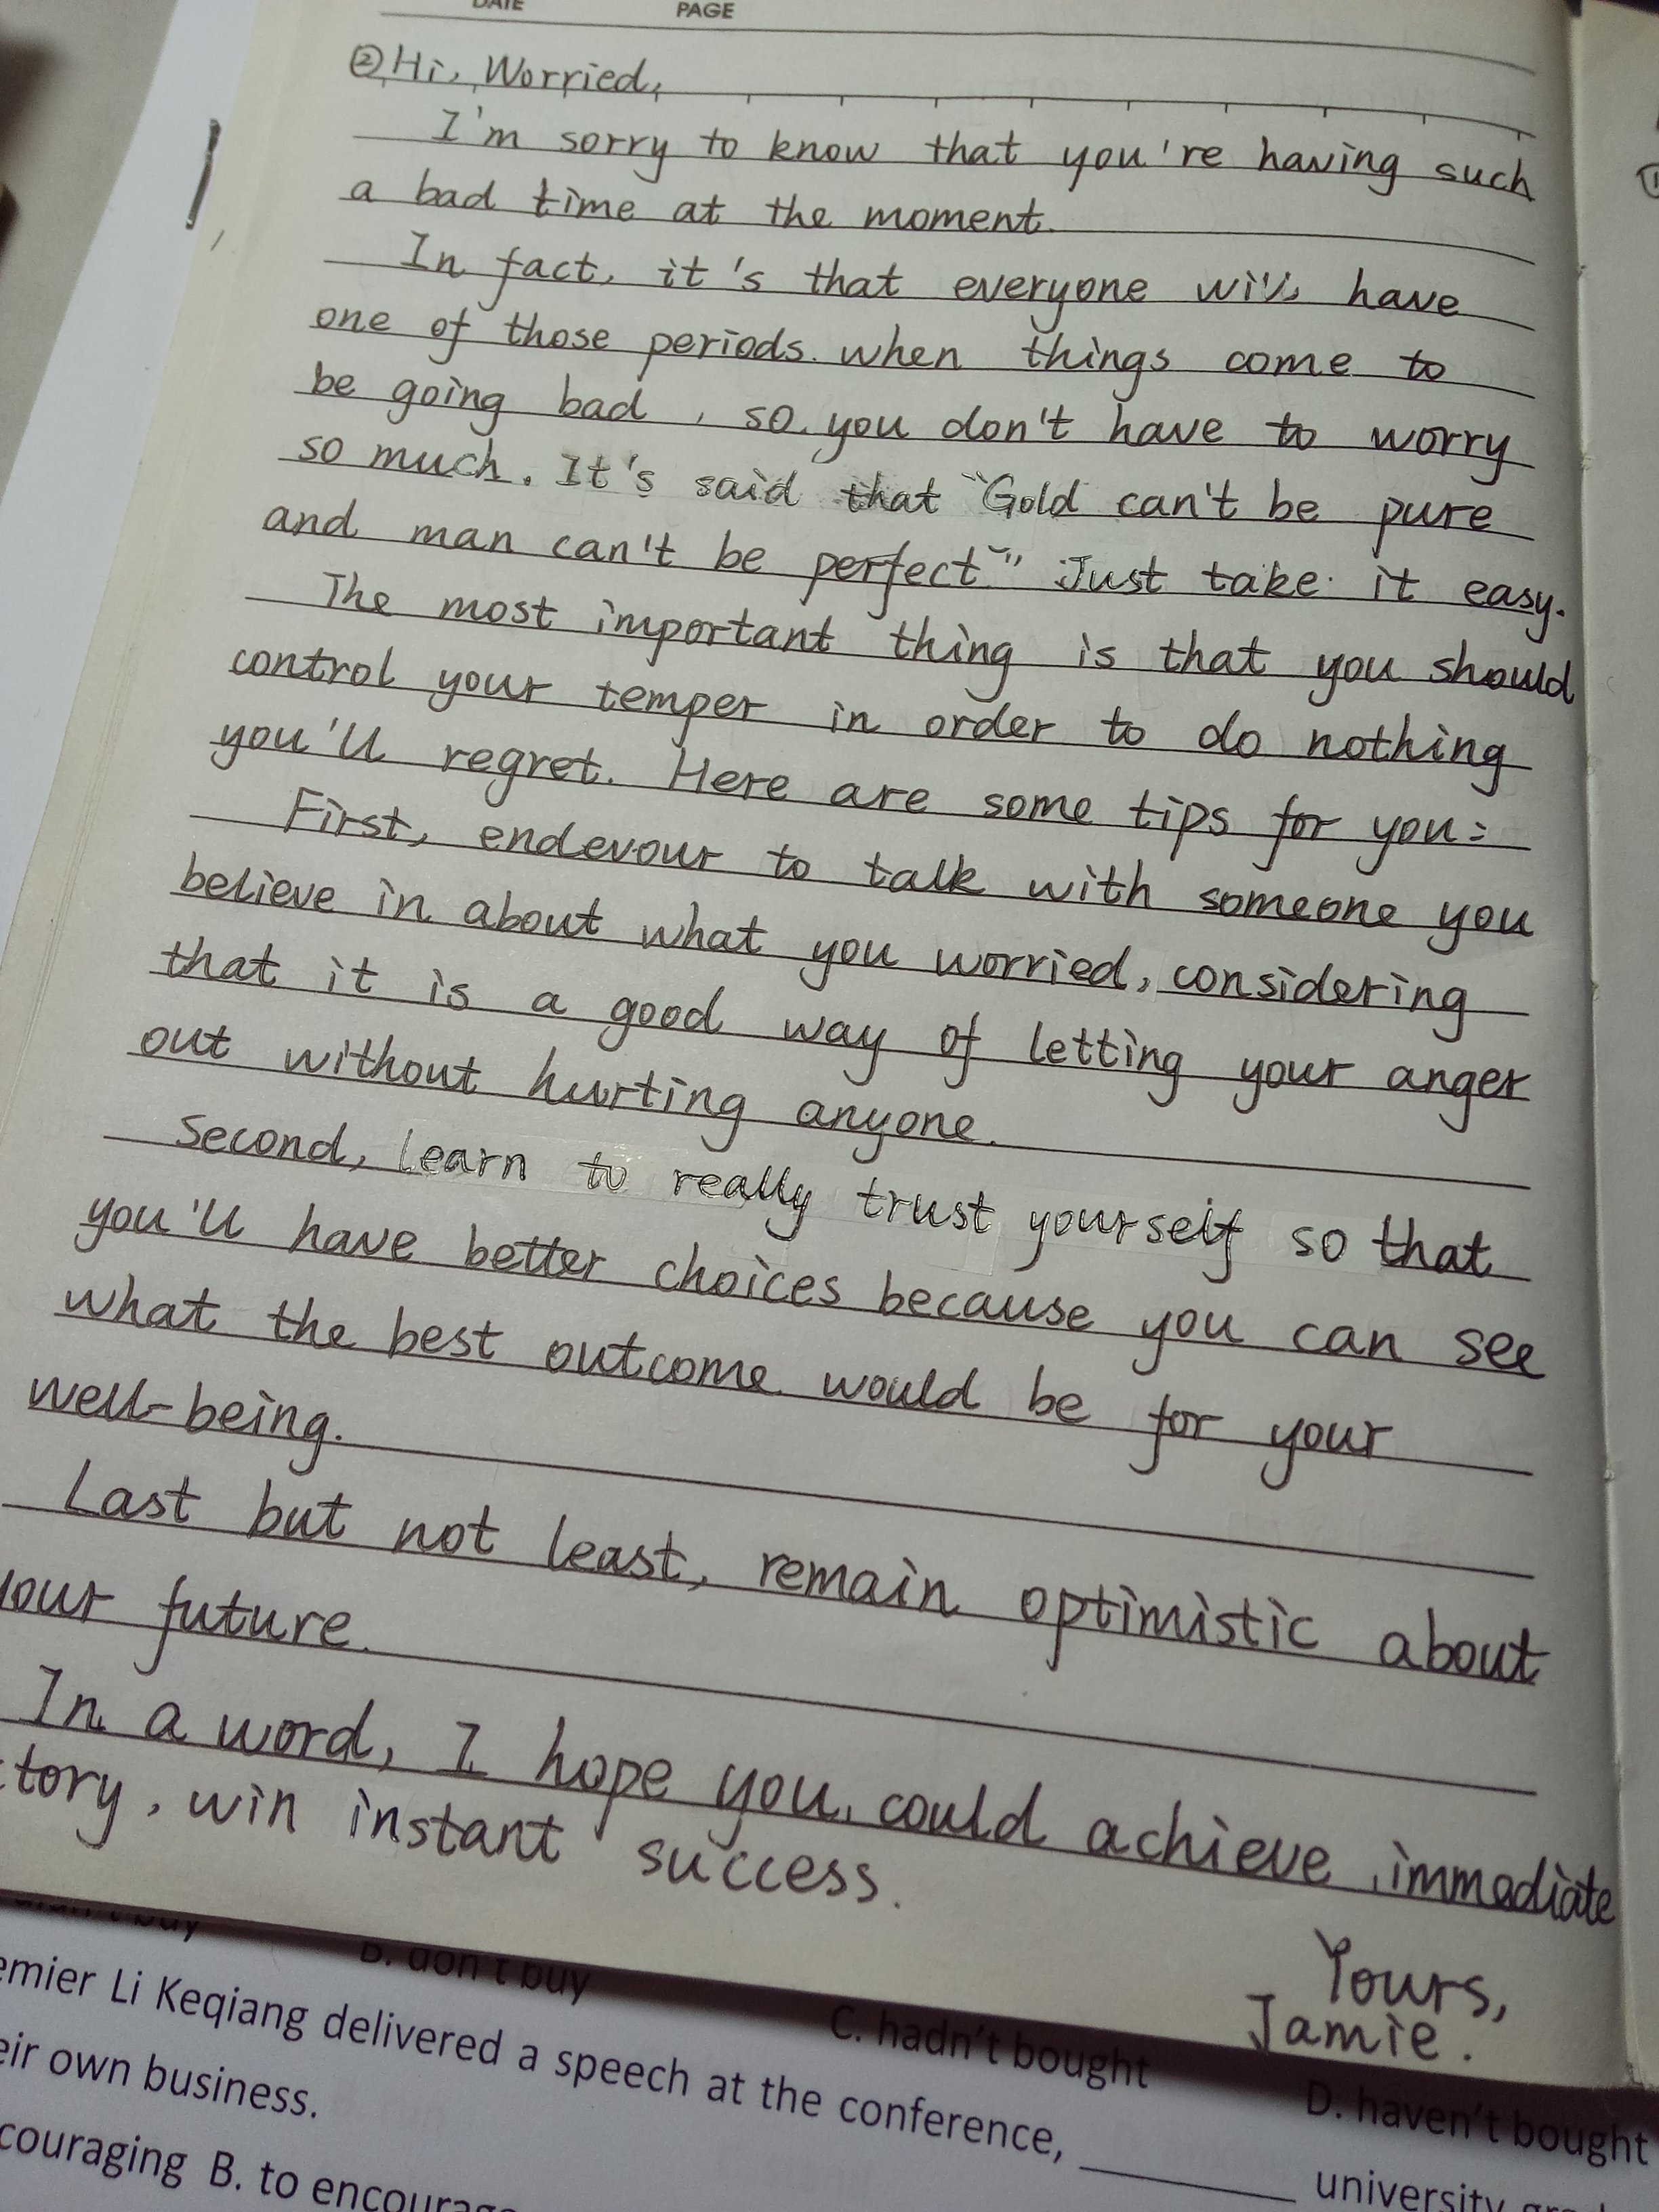 DATE PAGE
②Hi, Worried,
I'm sorry to know that you're having such
a bad time at the moment.
In fact, it's that everyone will have
one of those periods when things come to
be going bad, so you don't have to worry
so much. It's said that "Gold can't be pure
and man can't be perfect." Just take it easy.
The most important thing is that you should
control your temper in order to do nothing
you'll regret. Here are some tips for you:
First, endevour to talk with someone you
believe in about what you worried, considering
that it is a good way of letting your anger
out without hurting anyone.
Second, learn to really trust yourself so that
you'll have better choices because you can see
what the best outcome would be for your
well-being.
Last but not least, remain optimistic about
your future.
In a word, I hope you could achieve immediate
tory, win instant success.
Yours,
Jamie.
buy
B. don't buy
C. hadn't bought
D. haven't bought
emier Li Keqiang delivered a speech at the conference, ________ university
eir own business.
couraging B. to encourage